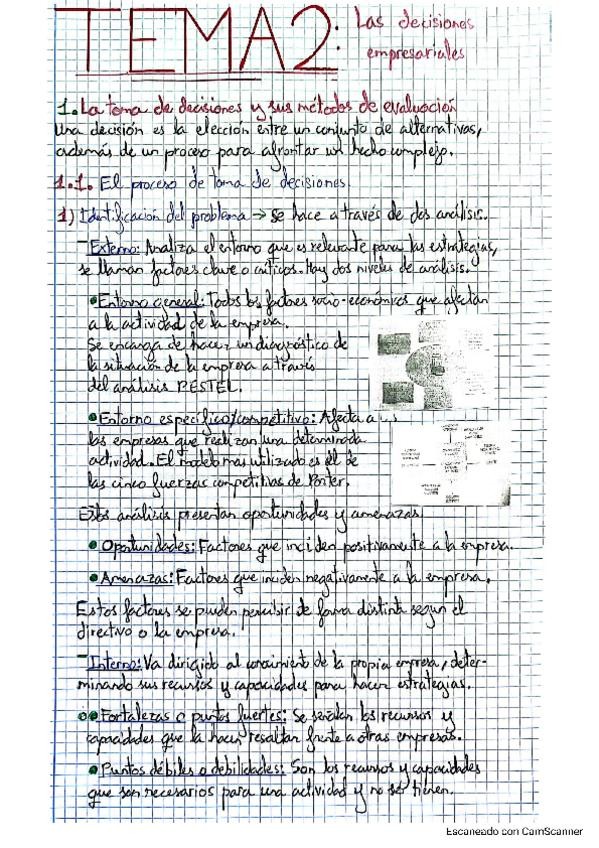 TEMA 2: Las decisiones
empresariales
1. La toma de decisiones y sus métodos de evaluación
Una decisión es la elección entre un conjunto de alternativas,
además de un proceso para afrontar un hecho complejo.
1.1. El proceso de toma de decisiones.
1) Identificación del problema → Se hace a través de dos análisis.
- Externo: Analiza el entorno que es relevante para las estrategias,
se llaman factores clave o críticos. Hay dos niveles de análisis.
• Entorno general: Todos los factores socio-económicos que afectan
a la actividad de la empresa.
Se encarga de hacer un diagnóstico de
la situación de la empresa a través
del análisis PESTEL.
• Entorno específico/competitivo: Afecta a
las empresas que realizan una determinada
actividad. El modelo mas utilizado es el de
las cinco fuerzas competitivas de Porter.
Estos análisis presentan oportunidades y amenazas.
• Oportunidades: Factores que inciden positivamente a la empresa.
• Amenazas: Factores que inciden negativamente a la empresa.
Estos factores se pueden percibir de forma distinta según el
directivo o la empresa.
- Interno: Va dirigido al conocimiento de la propia empresa, deter-
minando sus recursos y capacidades para hacer estrategias.
• Fortalezas o puntos fuertes: Se señalan los recursos y
capacidades que la hacen resaltar frente a otras empresas.
• Puntos débiles o debilidades: Son los recursos y capacidades
que son necesarios para una actividad y no se tienen.
Escaneado con CamScanner